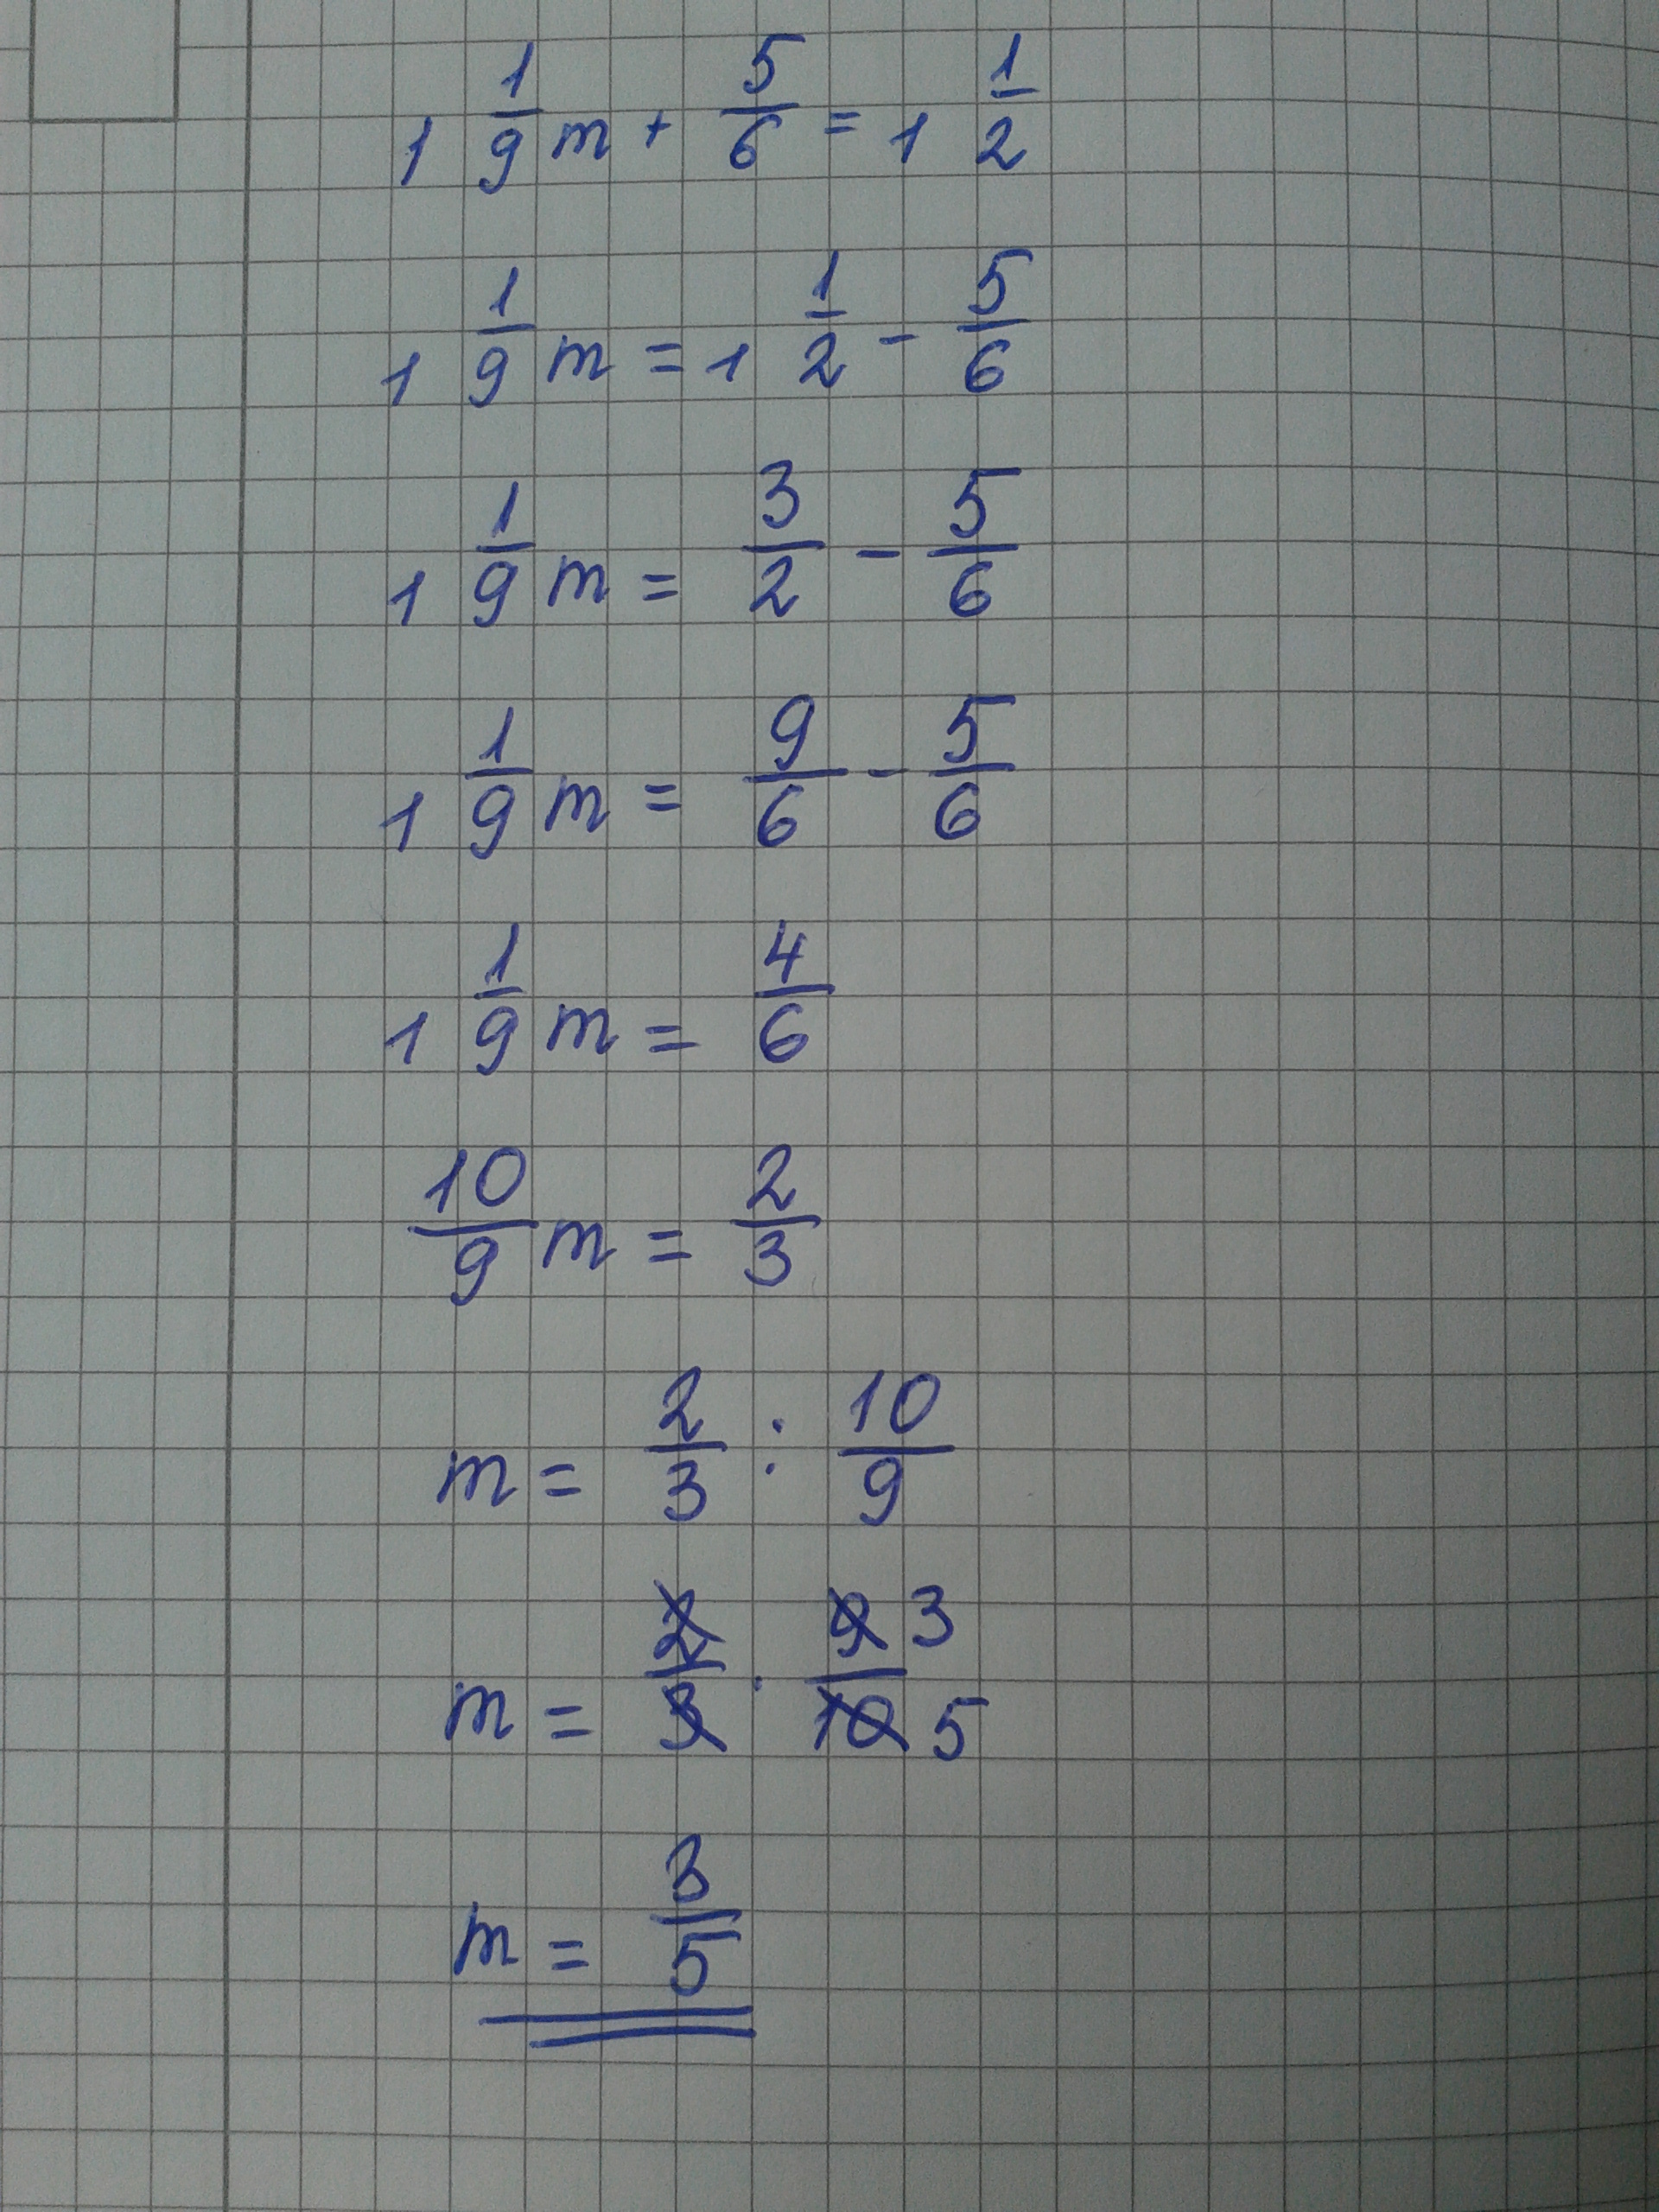 1 1/9 m + 5/6 = 1 1/2
1 1/9 m = 1 1/2 - 5/6
1 1/9 m = 3/2 - 5/6
1 1/9 m = 9/6 - 5/6
1 1/9 m = 4/6
10/9 m = 2/3
m = 2/3 : 10/9
m = 2/3 · 9/10 3 5
m = 3/5